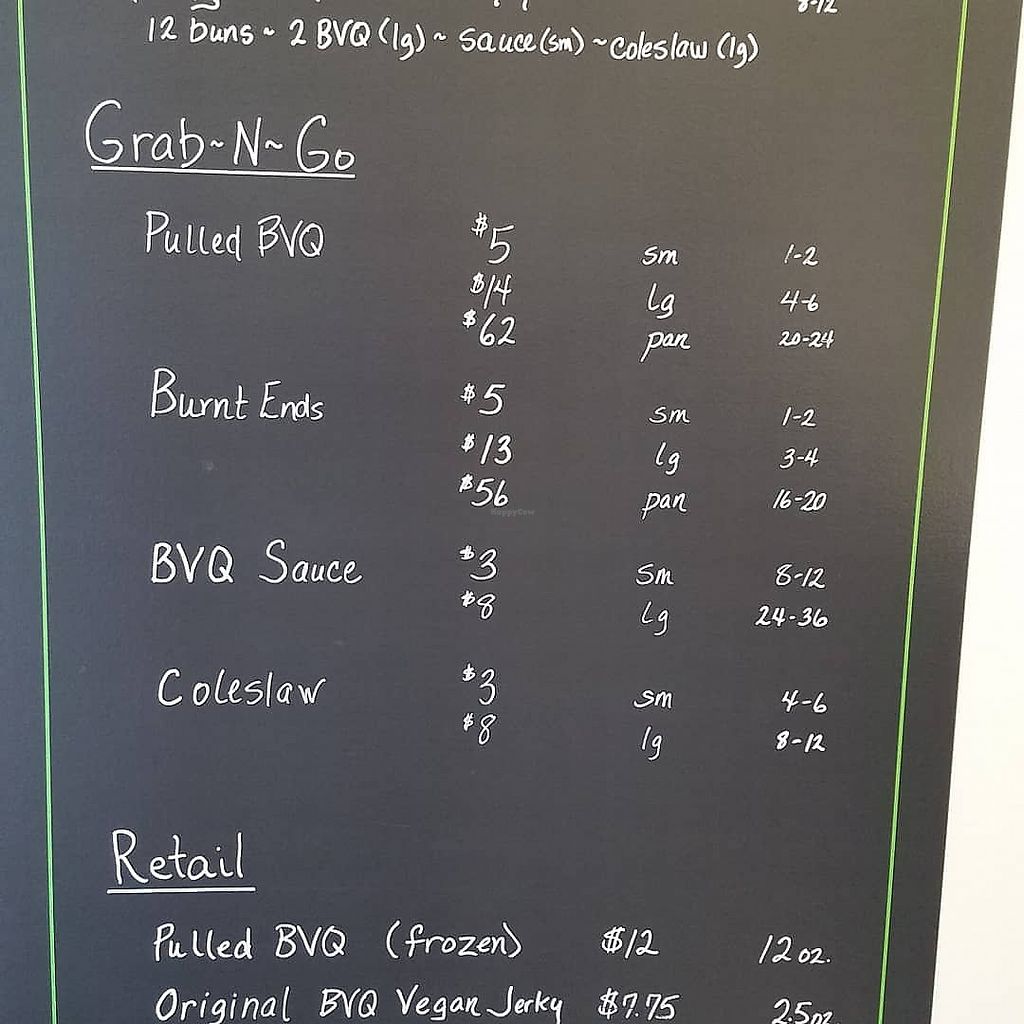 8-12
12 buns ~ 2 BVQ (lg) ~ sauce (sm) ~ coleslaw (lg)
Grab~N~Go
Pulled BVQ $5 sm 1-2
$14 lg 4-6
$62 pan 20-24
Burnt Ends $5 sm 1-2
$13 lg 3-4
$56 pan 16-20
HappyCow
BVQ Sauce $3 sm 8-12
$8 lg 24-36
Coleslaw $3 sm 4-6
$8 lg 8-12
Retail
Pulled BVQ (frozen) $12 12 oz.
Original BVQ Vegan Jerky $7.75 2.5oz.